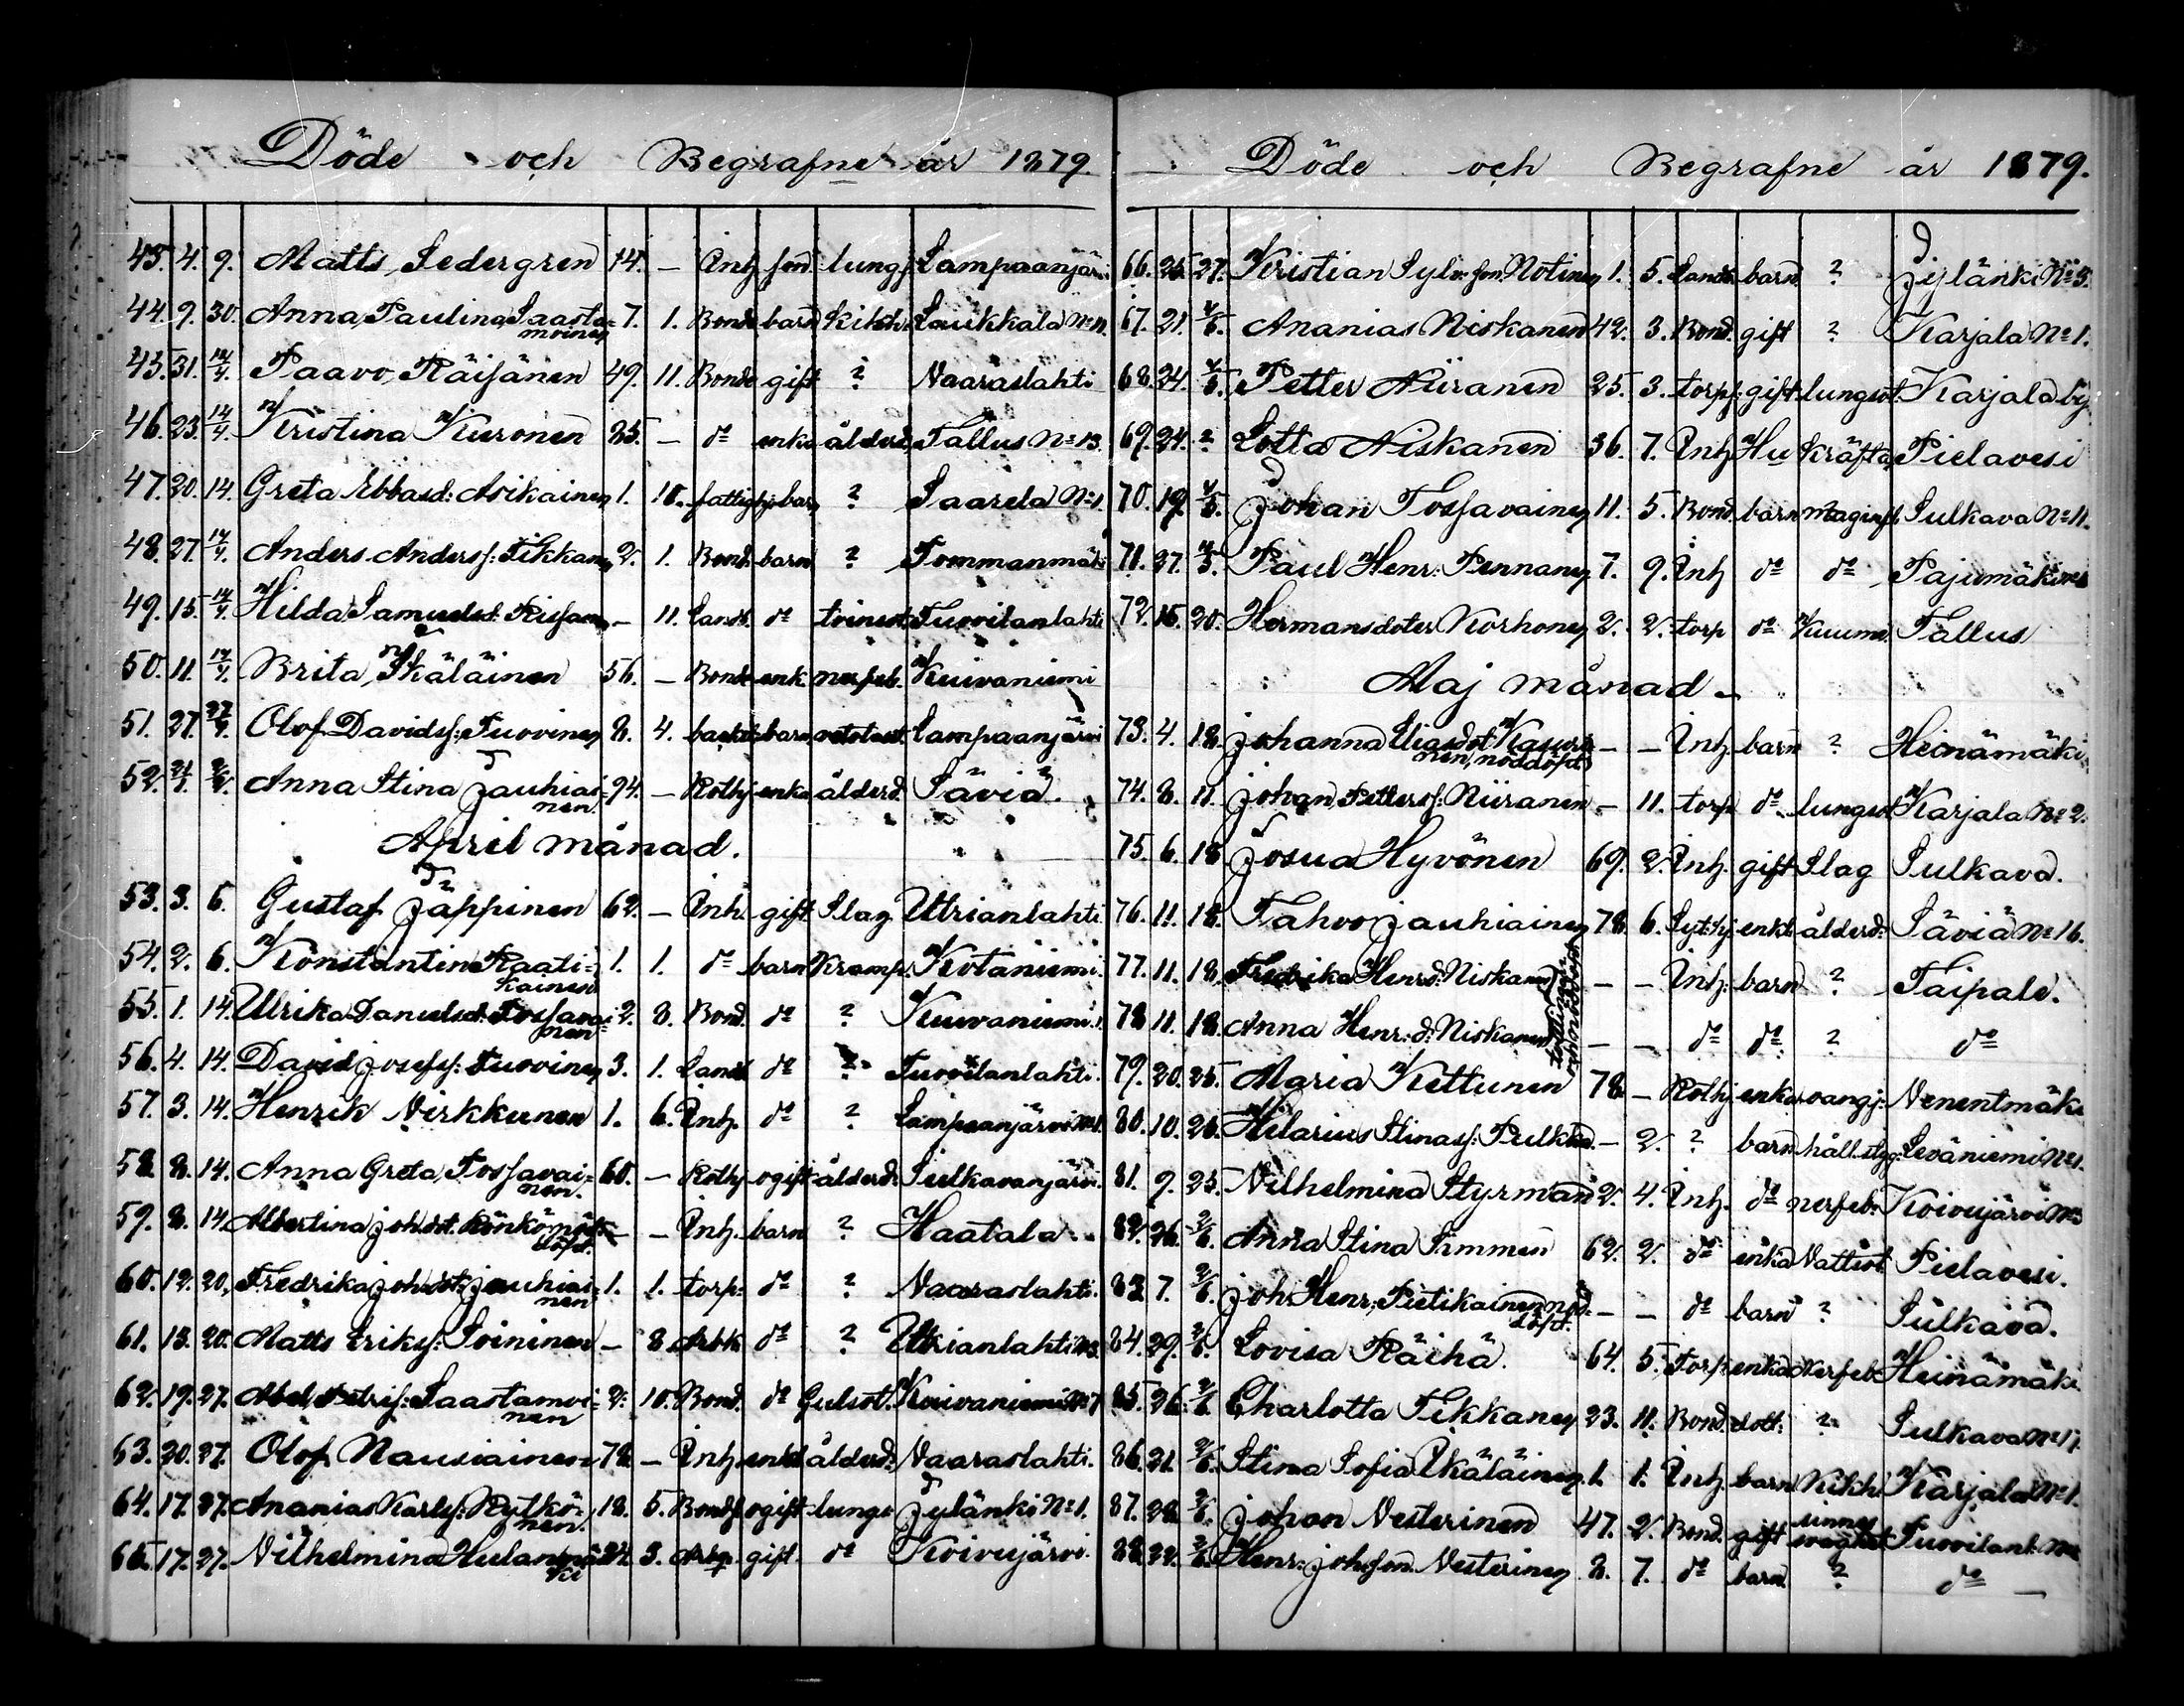 Döde och Begrafne år 1879.
45. 4. 9. Matts Sedergren 14. – Inh. son lungs. Lampaanjärvi
44. 9. 30. Anna Paulina Saasta-
moinen 7. 1. Bond. barn kikh. Laukkala
43. 31. 14/4. Paavo Räisänen 49. 11. Bond. gift ? Vaaraslahti
46. 23. 14/4. Kristina Kuronen 85. – do enka ålderd. Tallus No 13.
47. 20. 14. Greta Ebbasd: Asikainen 1. 10. fattighj. barn ? Saarela No 1.
48. 27. 14/4. Anders Anderss: Tikkanen 2. 1. Bond. barn ? Tommanmäki
49. 15. 14/4. Hilda Samuelsd. – 11. Landb. do Tuovilanlahti
50. 11. 14/4. Brita Ikäläinen 56. – Bond. enk. nerfeb. Kuivaniemi
51. 27. 27/4. Olof Davidss: Tuovinen 8. 4. barn Lampaanjärvi
52. Anna Stina Jauhiai-
nen. 94. – Rothj. enka ålderd. Säviä.
April månad.
53. 3. 6. Gustaf Jäppinen 62. – Inh. gift. Slag Utrianlahti
54. 2. 6. Konstantin Raati-
kainen 1. 1. do barn Kramp. Kotaniemi.
55. 1. 14. Ulrika Danielsd. Tossavai-
nen 2. 8. Bond. do ? Kuivaniemi.
56. 4. 14. David Josefs: Tuovinen 3. 1. Landb. do ? Tuovilanlahti.
57. 3. 14. Henrik Nirkkunen 1. 6. Inh. do ? Lampaanjärvi No 1.
58. 8. 14. Anna Greta Tossavai-
nen. 60. – Rothj. ogift ålderd. Sulkavanjärvi.
59. 8. 14. Albertina Joh.dot. – – Inh. barn ? Haatala.
60. 12. 20. Fredrika Joh.dot. Jauhiai-
nen 1. 1. torp. do ? Vaaraslahti.
61. 13. 20. Matts Eriks: Soininen – 8. Arbk. do ? Utrianlahti No 3.
62. 19. 27. Abel Petris: Saastamoi-
nen 2. 10. Bond. do Gulsot. Kuivaniemi No 7
63. 20. 27. Olof Nausiainen 78. – Inh. enkl ålderd. Vaaraslahti.
64. 17. 27. Ananias Karls: Rytkö-
nen. 18. 5. Bonds. ogift lungs. Jylänki No 1.
65. 17. 27. Vilhelmina 3. gift. do Koivujärvi.
Döde och Begrafne år 1879.
66. 25. 27. Kristian Sylv. son Notinen 1. 5. Landb. barn ? Jylänki No 3.
67. 21. 4/5. Ananias Niskanen 42. 3. Bond. gift ? Karjala No 1.
68. 24. 4/5. Petter Niiranen 25. 3. torp. gift lungsot. Karjala by
69. 24. ? Lotta Niskanen 36. 7. Inh. Hu Kräfta Pielavesi
70. 19. 4/5. Johan Tossavainen 11. 5. Bond. barn maginfl. Sulkava No 11.
71. 27. 4/5. Paul Henr: Pennanen 7. 9. Inh do do Pajumäki
72. 15. 20. Hermansdoter Korhonen 2. 2. torp do Tallus
Maj månad –
73. 4. 18. Johanna Eliasdot. Kasuri-
nen, nöddöpt. – – Inh. barn ? Heinämäki
74. 8. 11. Johan Petters: Niiranen – 11. torp do lungsot Karjala No 2.
75. 6. 18. Josua Hyvönen 69. 2. Inh. gift Slag Sulkava.
76. 11. 18. Tahvo Jauhiainen 78. 6. Syt.hj. enkl. ålderd. Säviä No 16.
77. 11. 18. Fredrika Henrd. Niskanen – – Inh. barn ? Taipale.
78. 11. 18. Anna Henr: d: Niskanen – – do do ? do
79. 20. 25. Maria Kettunen 78. – Rothj. enka Venentmäki
80. 10. 25. Hilarius Stinas: – 2. ? barn håll.stygn Leväniemi No 1.
81. 9. 25. Vilhelmina Styrman 2. 4. Inh. do nerfeb. Koivujärvi
82. 26. 2/6. Anna Stina Simmen 62. 2. do enka Vattsot. Pielavesi.
83. 7. 2/6. Joh. Henr: Pietikainen nöd-
döpt. – – do barn ? Sulkava.
84. 29. 2/6. Lovisa Räihä. 64. 5. Torp. enka Nerfeb. Heinämäki
85. 26. 2/6. Charlotta Tikkanen 23. 11. Bond. dott. ? Sulkava No 17.
86. 21. 2/6. Stina Sofia Ikäläinen 1. 1. Inh. barn Kikh. Karjala No 1.
87. 28. 2/6. Johan Vesterinen 47. 2. Bond. gift sinnes
svaghet Tuovilanl.
88. 22. 2/6. Henr: Johsson Vesterinen 8. 7. do barn ? do –